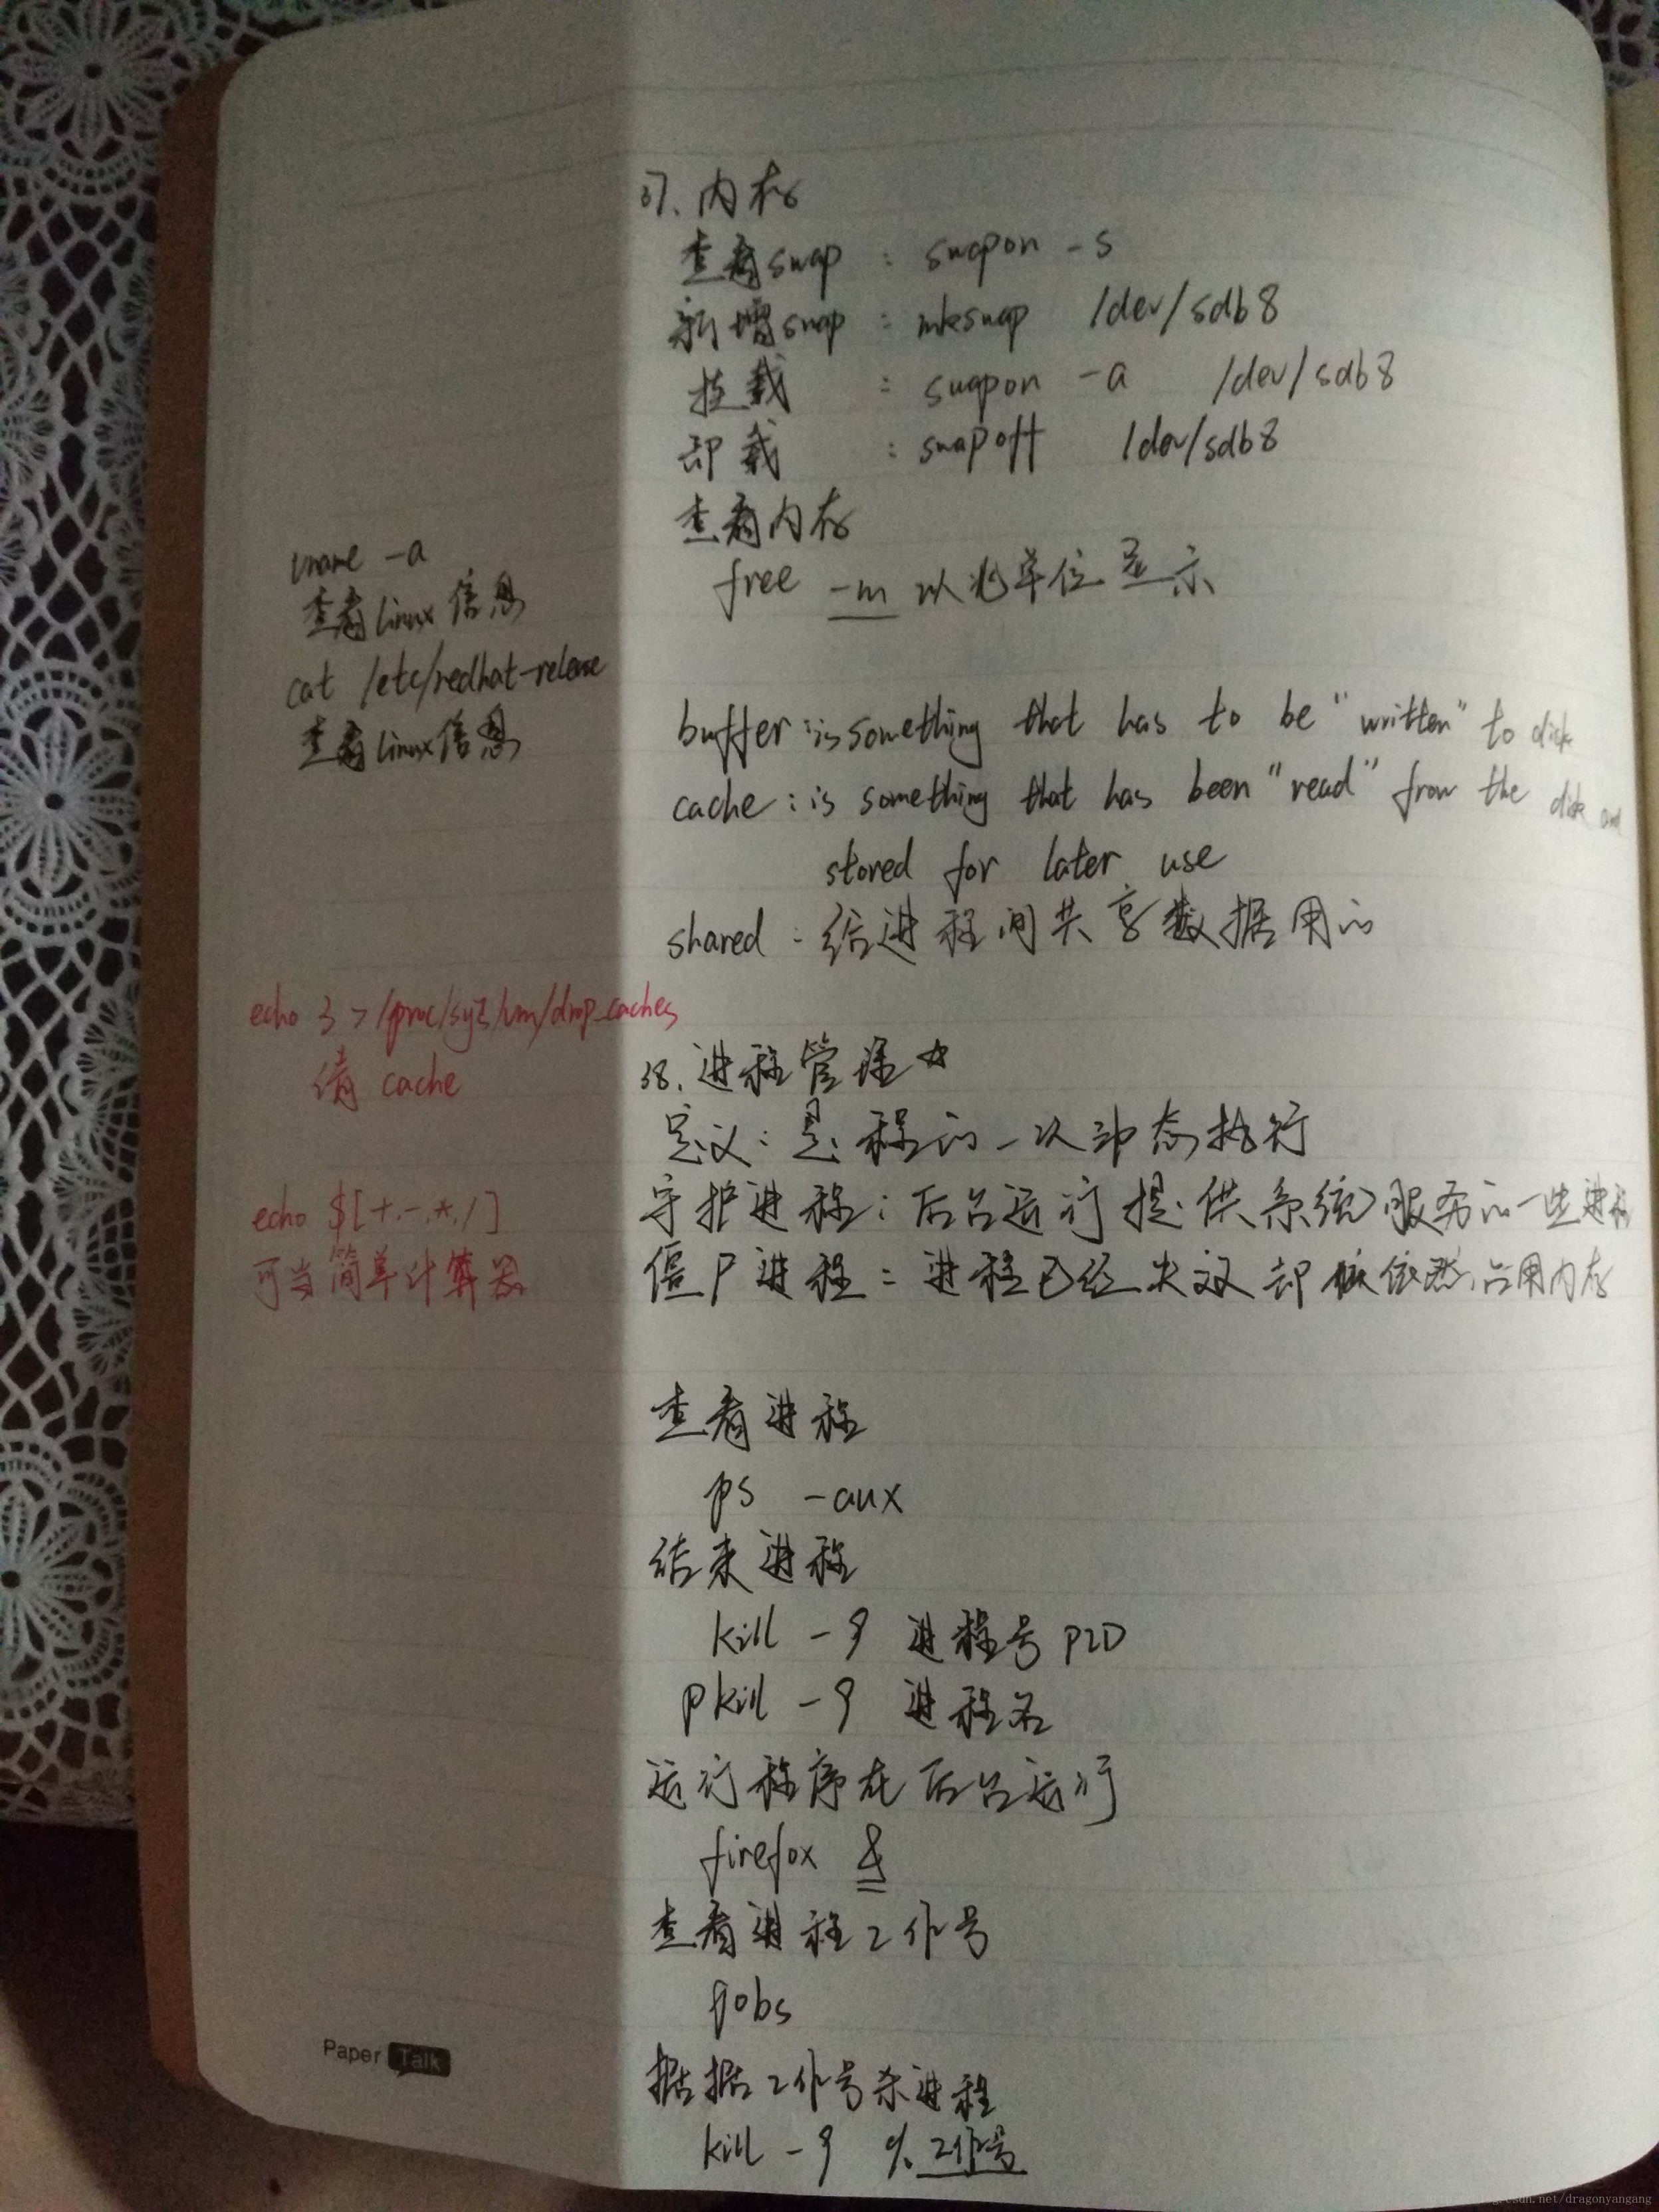 37. 内存
查看swap : swapon -s
新增swap : mkswap /dev/sdb8
挂载 : swapon -a /dev/sdb8
卸载 : swapoff /dev/sdb8
查看内存
free -m 以兆单位显示
buffer : is something that has to be "written" to disk
cache : is something that has been "read" from the disk and
stored for later use
shared : 给进程间共享数据用的
38. 进程管理☆
定义: 是程的一次动态执行
守护进程: 后台运行提供系统服务的一些进程
僵尸进程: 进程已经失效却依然占用内存
查看进程
ps -aux
结束进程
kill -9 进程号PID
pkill -9 进程名
运行程序在后台运行
firefox &
查看进程工作号
jobs
据据工作号杀进程
kill -9 %工作号
uname -a
查看linux信息
cat /etc/redhat-release
查看linux信息
echo 3 > /proc/sys/vm/drop_caches
清 cache
echo $[+,-,*,/]
可当简单计算器
Paper Talk
net/dragonyangang